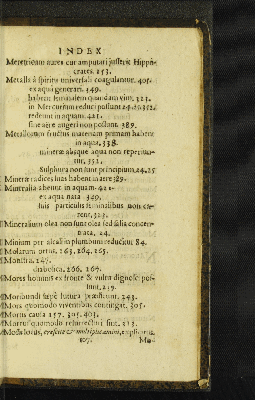 INDEX
Meretricum aures cur amputari jusserit Hippo-
crates. 253.
Metalla à spiritu universali coagulantur. 405.
ex aqua generari. 349.
habent seminalem quandam vim. 323.
in Mercurium reduci possunt 25.
redeunt in aquam. 421.
sine aëre augeri non possunt. 389.
Metallorum fructus materiam primam habent
in aqua. 338.
mineræ absque aqua non reperiun-
tur. 351.
Sulphura non sunt principium. 24. 25
Mineræ radices suas habent in aëre 389.
Mineralia abeunt in aquam. 421.
ex aqua nata 349.
suis particulis seminalibus non ca-
rent. 323.
Mineralium olea non sunt olea sed salia concen-
trata. 24.
Minium per alcali in plumbum reducium 84.
Molarum ortus. 163. 164. 165.
Monstra. 147.
diabolica. 166. 167.
Mores hominis ex fronte & vultu dignosci pos-
sunt. 219.
Moribundi sæpè futura præsciunt. 243.
Mors quomodo viventibus contingat. 305.
Mortis causa 157. 305. 403.
Mortui quomodo resurrecturi sint. 323.
Mosis locus, crescite & multiplicamini, explicatus.
107.